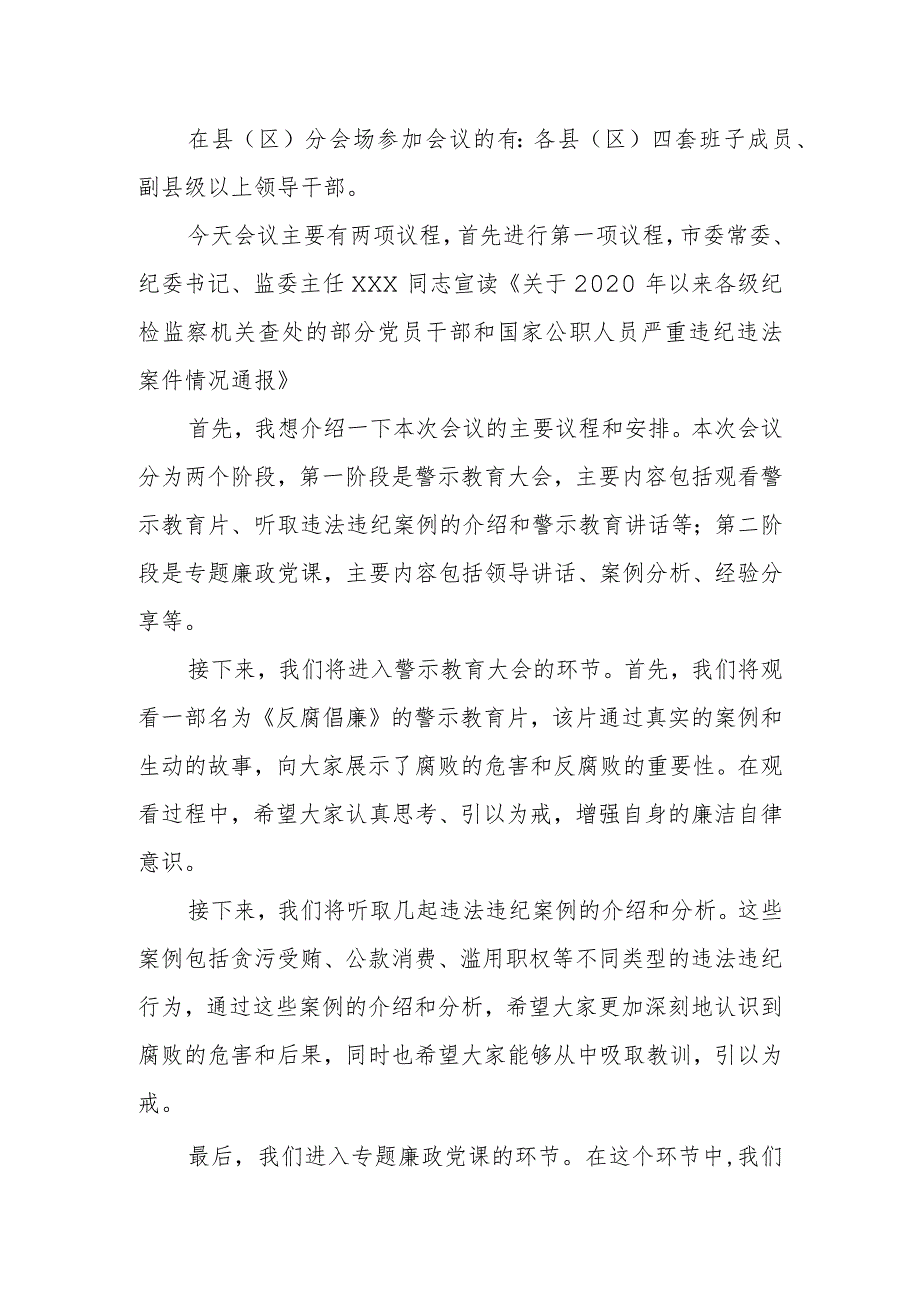 在县（区）分会场参加会议的有：各县（区）四套班子成员、
副县级以上领导干部。
今天会议主要有两项议程，首先进行第一项议程，市委常委、
纪委书记、监委主任 XXX 同志宣读《关于 2020 年以来各级纪
检监察机关查处的部分党员干部和国家公职人员严重违纪违法
案件情况通报》
首先，我想介绍一下本次会议的主要议程和安排。本次会议
分为两个阶段，第一阶段是警示教育大会，主要内容包括观看警
示教育片、听取违法违纪案例的介绍和警示教育讲话等；第二阶
段是专题廉政党课，主要内容包括领导讲话、案例分析、经验分
享等。
接下来，我们将进入警示教育大会的环节。首先，我们将观
看一部名为《反腐倡廉》的警示教育片，该片通过真实的案例和
生动的故事，向大家展示了腐败的危害和反腐败的重要性。在观
看过程中，希望大家认真思考、引以为戒，增强自身的廉洁自律
意识。
接下来，我们将听取几起违法违纪案例的介绍和分析。这些
案例包括贪污受贿、公款消费、滥用职权等不同类型的违法违纪
行为，通过这些案例的介绍和分析，希望大家更加深刻地认识到
腐败的危害和后果，同时也希望大家能够从中吸取教训，引以为
戒。
最后，我们进入专题廉政党课的环节。在这个环节中,我们